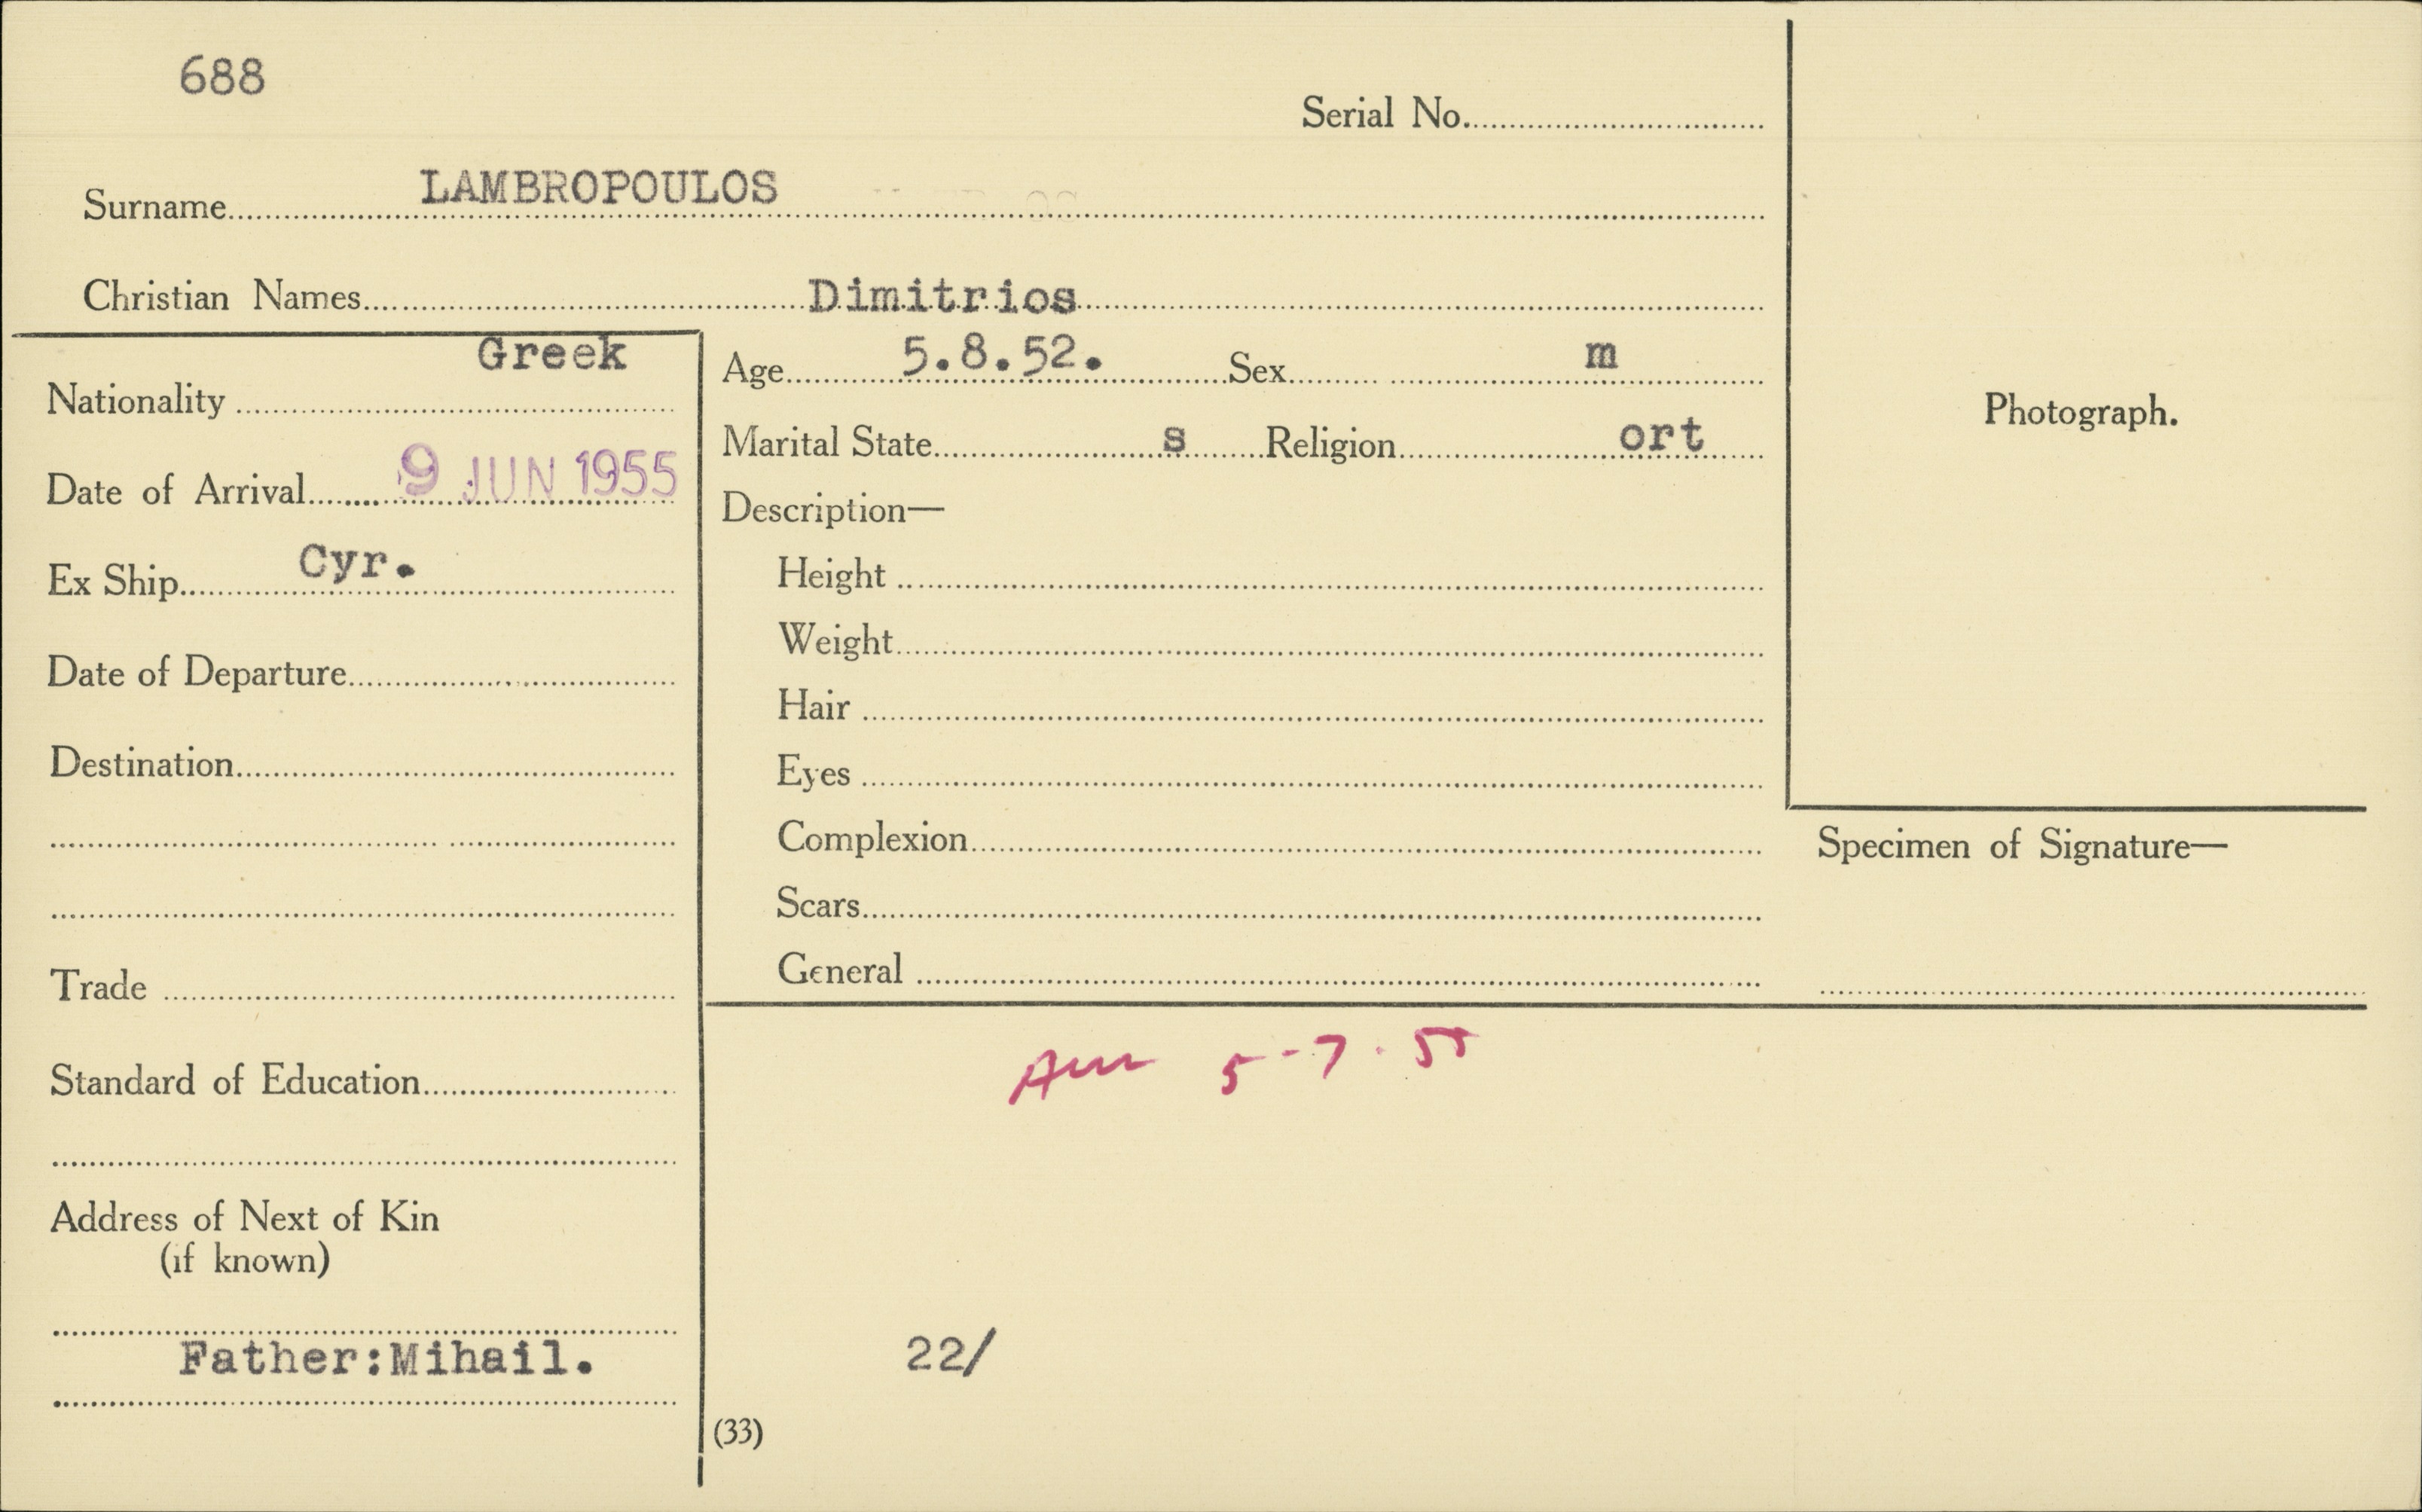 688
Serial No.
Surname LAMBROPOULOS
Christian Names Dimitrios
Nationality Greek
Date of Arrival 9 JUN 1955
Ex Ship Cyr.
Date of Departure
Destination
Trade
Standard of Education
Address of Next of Kin
(if known)
Father:Mihail.
Age 5.8.52. Sex m
Marital State s Religion ort
Description—
Height
Weight
Hair
Eyes
Complexion
Scars
General
Photograph.
Specimen of Signature—
5-7.55
22/
(33)